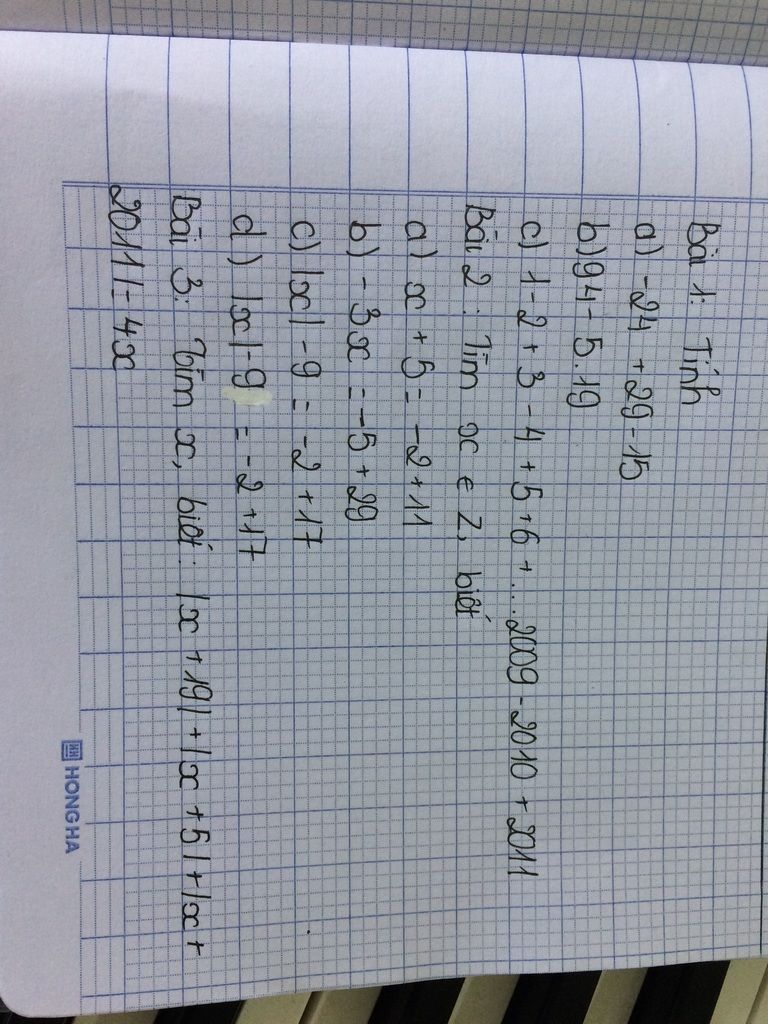 Bài 1: Tính
a) -24 + 29 - 15
b) 94 - 5.19
c) 1 - 2 + 3 - 4 + 5 + 6 + ... 2009 - 2010 + 2011
Bài 2: Tìm x ∈ Z, biết
a) x + 5 = -2 + 11
b) -3x = -5 + 29
c) |x| - 9 = -2 + 17
d) |x| - 9 = -2 + 17
Bài 3: Tìm x, biết: |x + 19| + |x + 5| + |x +
2011| = 4x
HONG HA